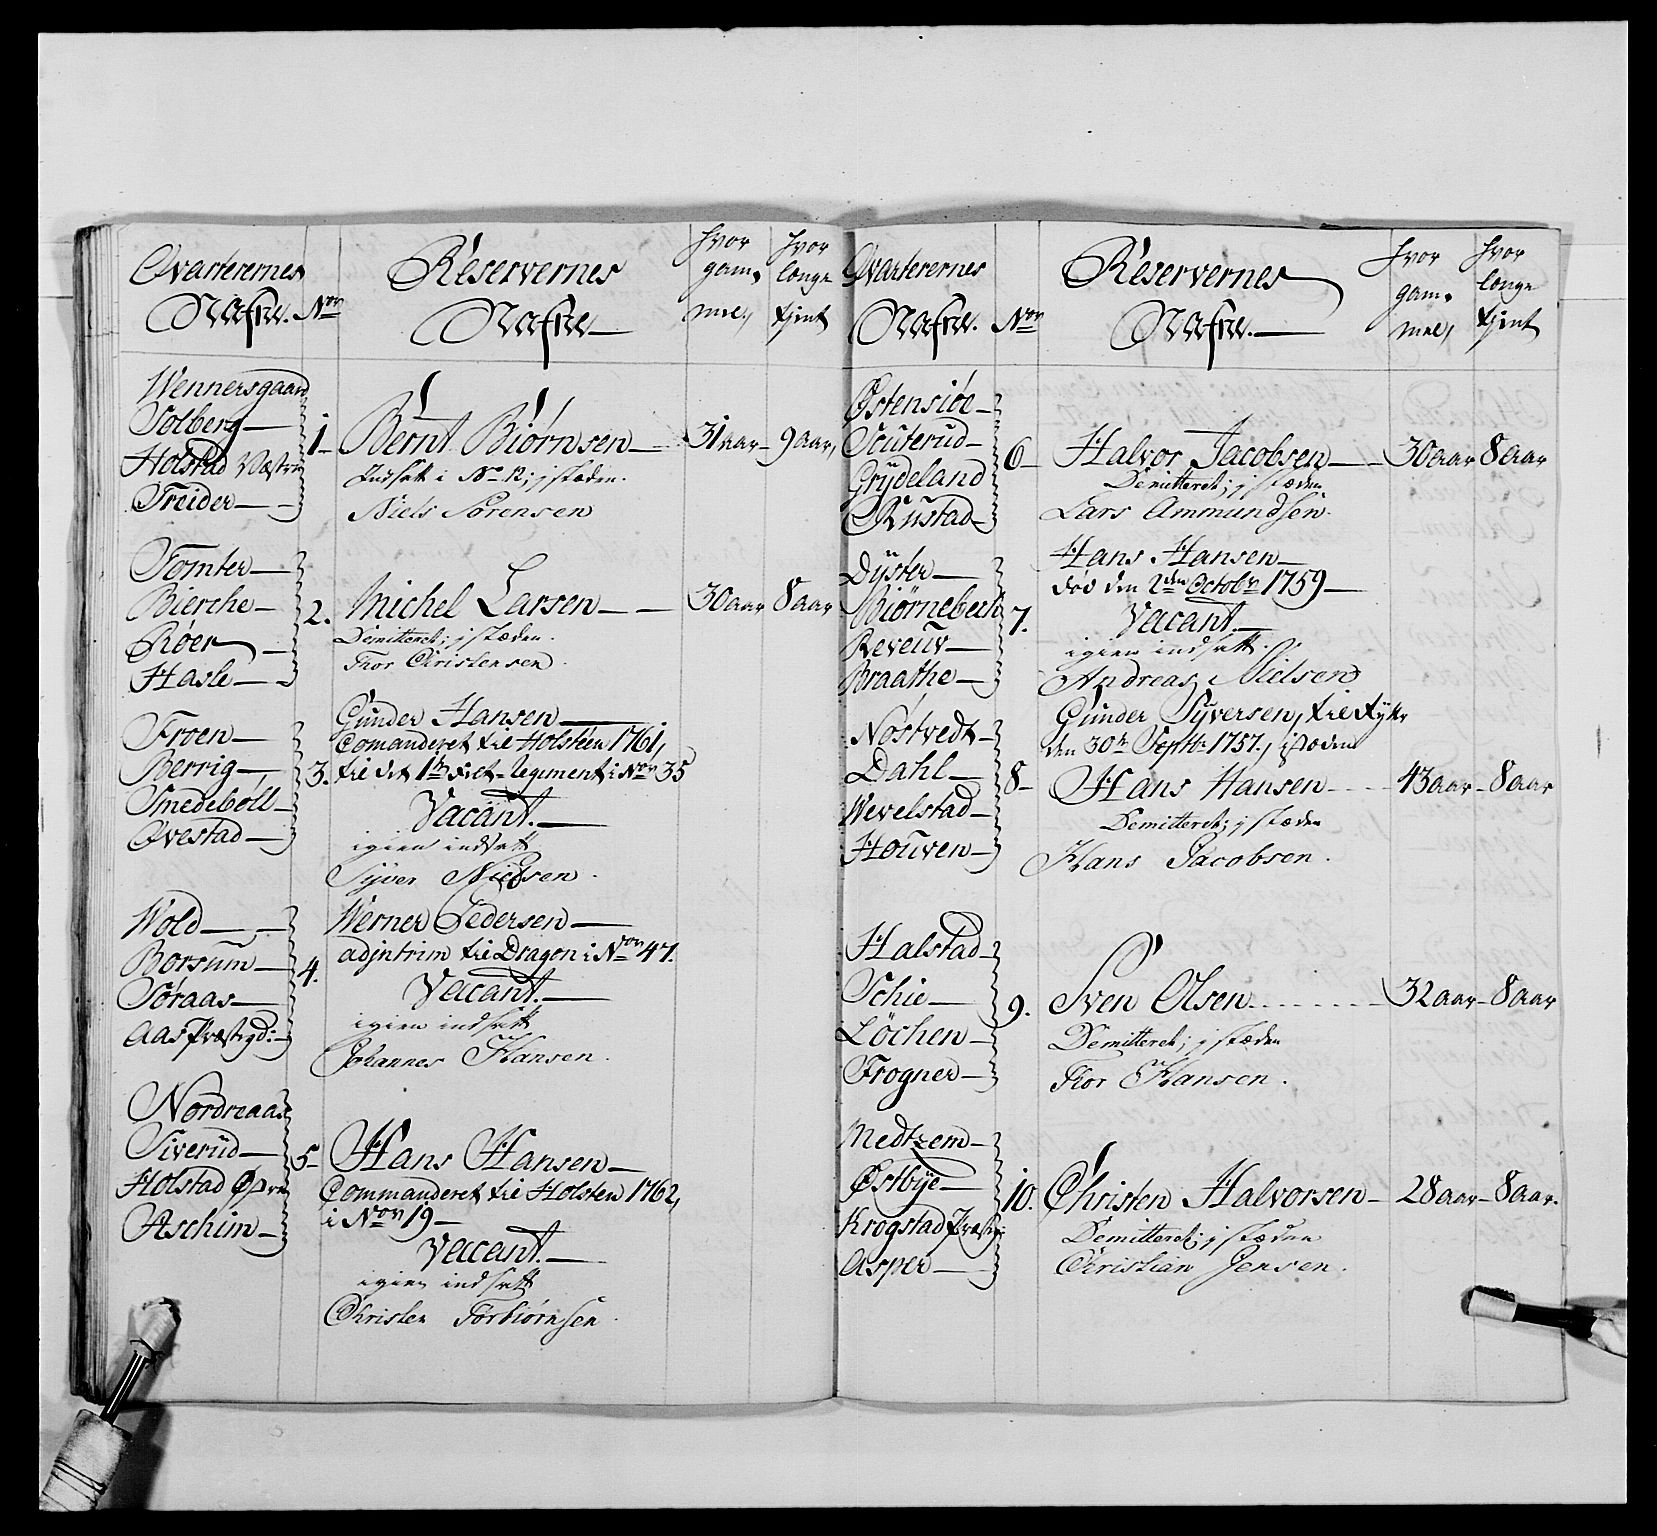 Qvarterernes
Nafne. No:
Reservernes
Nafne
hvor
gam-
mel,
hvor
længe
tjent
Wennersgaard
Solberg
Holstad Vestre
Treider
1
Bernt Biørnsen 31 aar 9 aar,
Indsatt i No 12; j stæden.
Niels Sørensen
Tomter
Bierche
Røer
Hasle
2.
Michel Larsen 30 aar 8 aar
Demitteret; j stæden.
Thor Christensen
Froen
Berrig
Smedebøll
Ovestad
3.
Gunder Hansen
Comanderet til Holsteen 1761,
til det 1te Regiment i No: 35
Vacant.
igien indsatt
Syver Nielsen.
Wold
Borsum
Søraas
Aas Præstgd:
4.
Werner Pedersen
adjntrim til Dragon i No: 47.
Vacant.
igien indsatt
Johannes Hansen.
Nordreaas
Siverud
Holstad Øvre
Aschim
5
Hans Hansen
Commanderet til Holsten 1762,
i No: 19
Vacant.
igien indsatt
Christen Torbiørnsen.
Qvarterernes
Nafne. No:
Reservernes
Nafne.
hvor
gam-
mel,
hvor
længe
tjent
Østensiøe
Scuterud
Grydeland
Rustad
6
Halvor Jacobsen 30 aar 8 aar
Demitteret; j stæden
Lars Ammundsen.
Dyster
Biørnebech
Reveuv
Braathe
7.
Hans Hansen
død den 2den Octobr: 1759
Vacant.
igien indsatt.
Andreas Nielsen
Nøstvedt
Dahl
Wevelstad
Houven
8
Gunder Syversen, til
den 30te Septbr: 1757., istæden
Hans Hansen 43 aar 8 aar
Demitteret; j stæden
Hans Jacobsen.
Halstad
Schie
Løchen
Frogner
9.
Sven Olsen 32 aar 8 aar
Demitteret; j stæden
Thor Hansen.
Medtzem
Østbye
Krogstad Præstg:
Asper
10.
Christen Halvorsen 28 aar 8 aar.
Demitteret; j stæden
Christian Jensen.